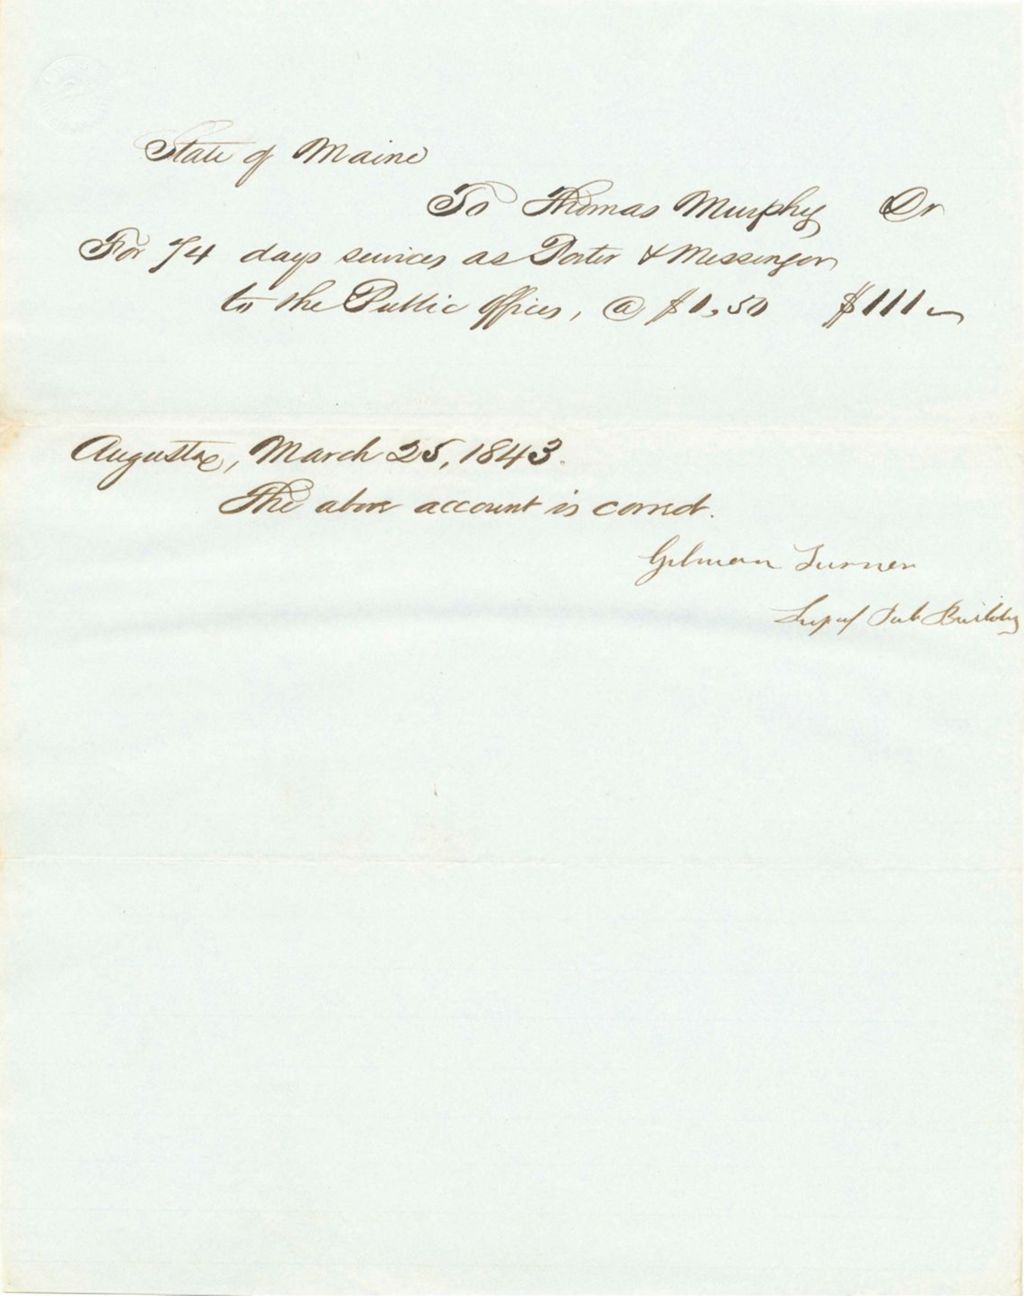 State of Maine
To Thomas Murphy Dr
For 74 days services as Porter & Messenger
to the Public Offices, @ $1,50 $111-
Augusta, March 25, 1843.
The above account is correct.
Gilman Turner
Sup of Pub Buildings